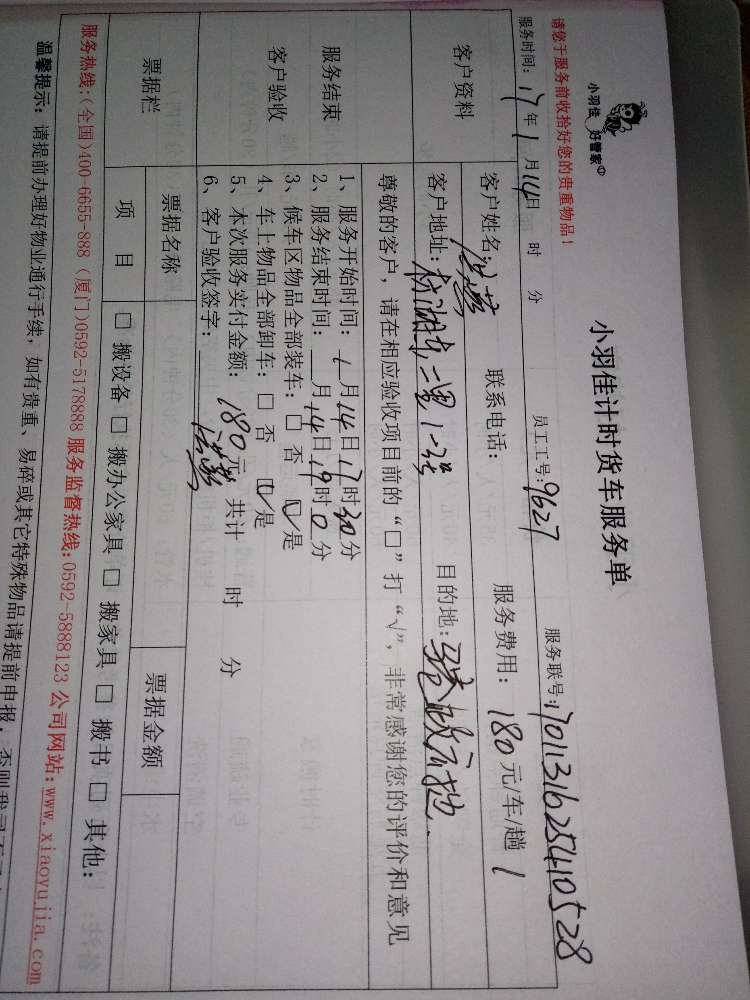 小羽佳 好管家
小羽佳计时货车服务单
请您于服务前收拾好您的贵重物品！
服务时间：17年1月14日 时 分 员工工号：9627 服务联号：1701131625410528
客户资料
客户姓名： 联系电话： 服务费用：180元/车/趟 1
客户地址： 目的地：
尊敬的客户，请在相应验收项目前的“□”打“√”，非常感谢您的评价和意见
服务结束
客户验收
1、服务开始时间：1月14日17时30分
2、服务结束时间：__月14日19时0分
3、候车区物品全部装车：□ 否 ☑是
4、车上物品全部卸车：□ 否 ☑是
5、本次服务实付金额：180元 共计 时 分
6、客户验收签字：
票据栏
票据名称 票据金额
项 目 □ 搬设备 □ 搬办公家具 □ 搬家具 □ 搬书 □ 其他：
服务热线：(全国)400-6655-888 (厦门)0592-5178888 服务监督热线：0592-5888123 公司网站：www.xiaoyujia.com
温馨提示：请提前办理好物业通行手续，如有贵重、易碎或其它特殊物品请提前申报，否则我司不